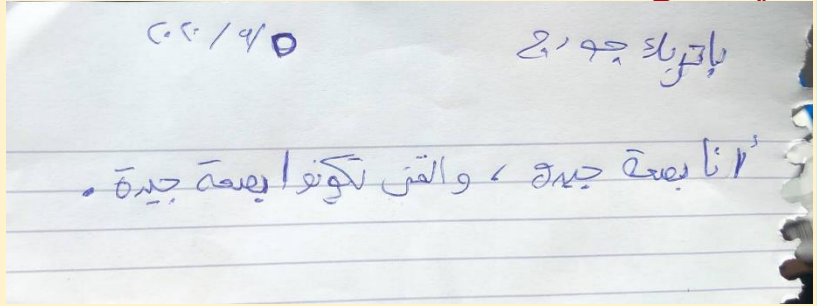 باتريك جورج ٥/٩/٢٠٢٠
أنا بصحة جيدة ، واتمنى تكونوا بصحة جيدة .